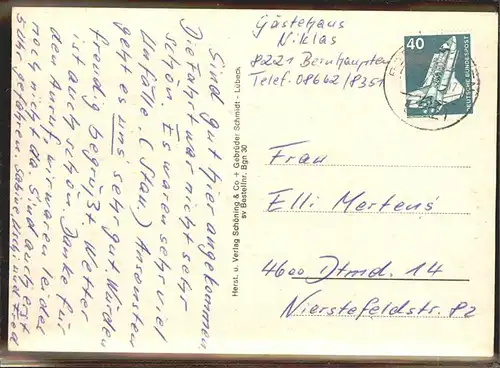 Sind gut hier angekommen.
Die Fahrt war nicht sehr
schön. Es waren sehr viel
Unfälle (Stau). Ansonsten
geht es uns sehr gut. Würden
freudig begrüßt. Wetter
ist auch schön. Danke für
den Anruf, wir waren leider
noch nicht da. Sind auch erst
5 Uhr gefahren. Sabine,
Herst. u. Verlag Schöning & Co + Gebrüder Schmidt - Lübeck
sv Bestellnr. Bgn 30
Gästehaus
Niklas
8221 Bernhaupten
Telef. 08662/8351
40
DEUTSCHE BUNDESPOST
Frau
Elli Mertens
4600 Dtmd. 14
Nierstefeldstr. 82